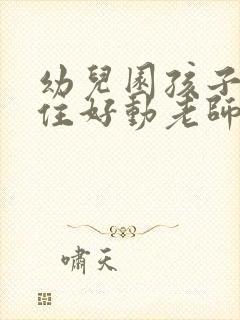 幼兒園孩子
住好動老師
嘯天